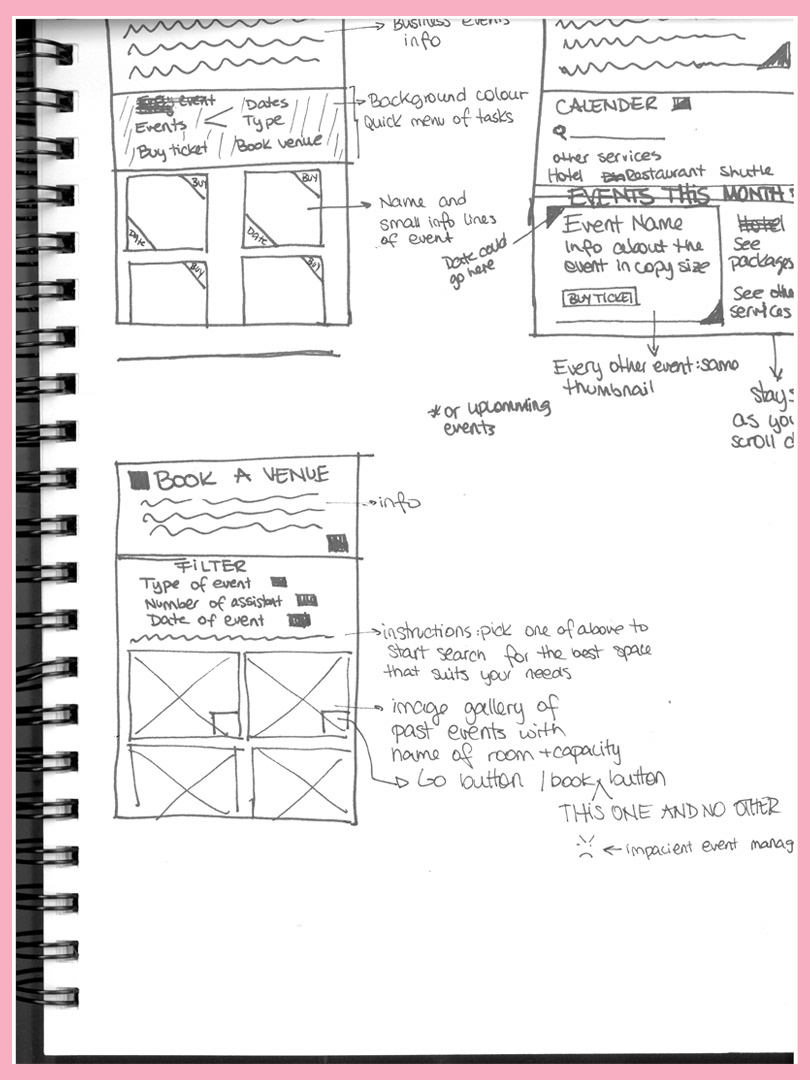 Business events
info
Event
Events
Dates
Type
Buy ticket
Book venue
Background colour
Quick menu of tasks
BUY
Date
BUY
Date
BUY
BUY
Name and
small info lines
of event
CALENDER
other services
Hotel Restaurant Shuttle
EVENTS THIS MONTH
Date could
go here
Event Name
info about the
event in copy size
BUY TICKET
Hotel
See
packages
See othe
services
Every other event:same
thumbnail
stay
as you
scroll d
*or upcomming
events
BOOK A VENUE
info
FILTER
Type of event
Number of assistant
Date of event
instructions:pick one of above to
start search for the best space
that suits your needs
image gallery of
past events with
name of room + capacity
Go button / book button
THIS ONE AND NO OTHER
impacient event manag